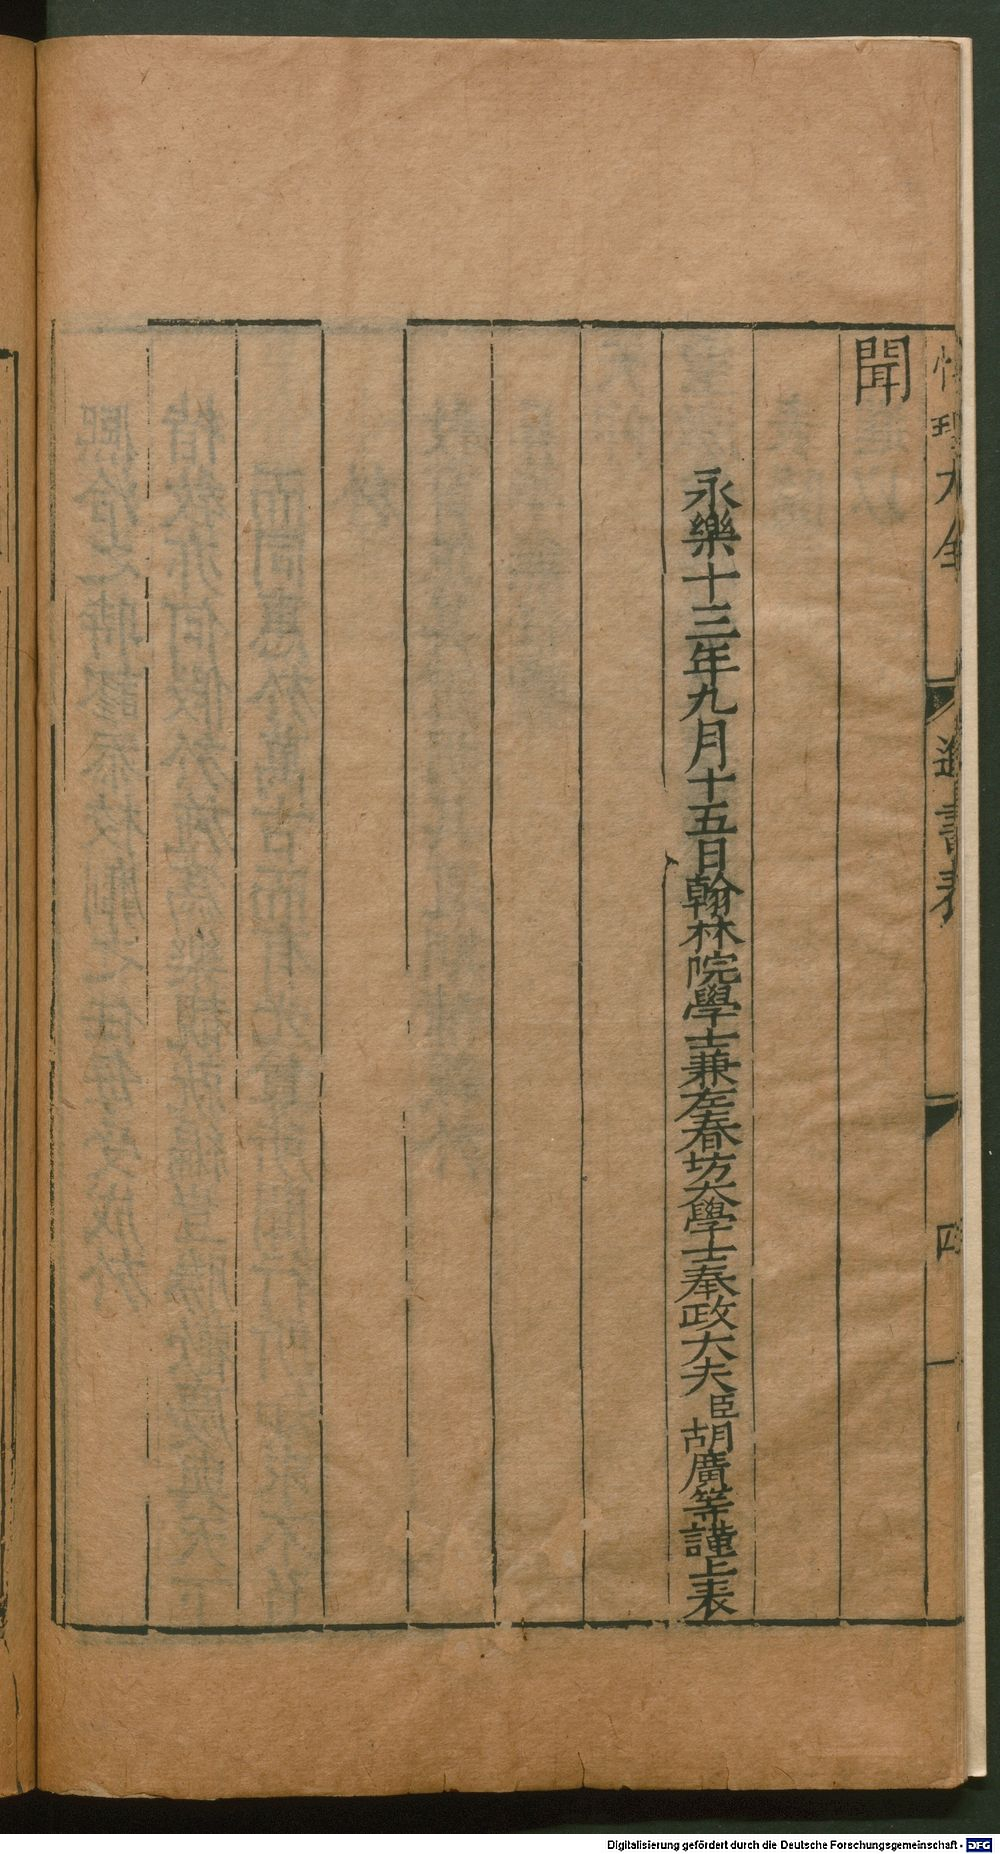 性理大全 進書表 四
聞
永樂十三年九月十五日翰林院學士兼左春坊大學士奉政大夫臣胡廣等謹上表
Digitalisierung gefördert durch die Deutsche Forschungsgemeinschaft - DFG